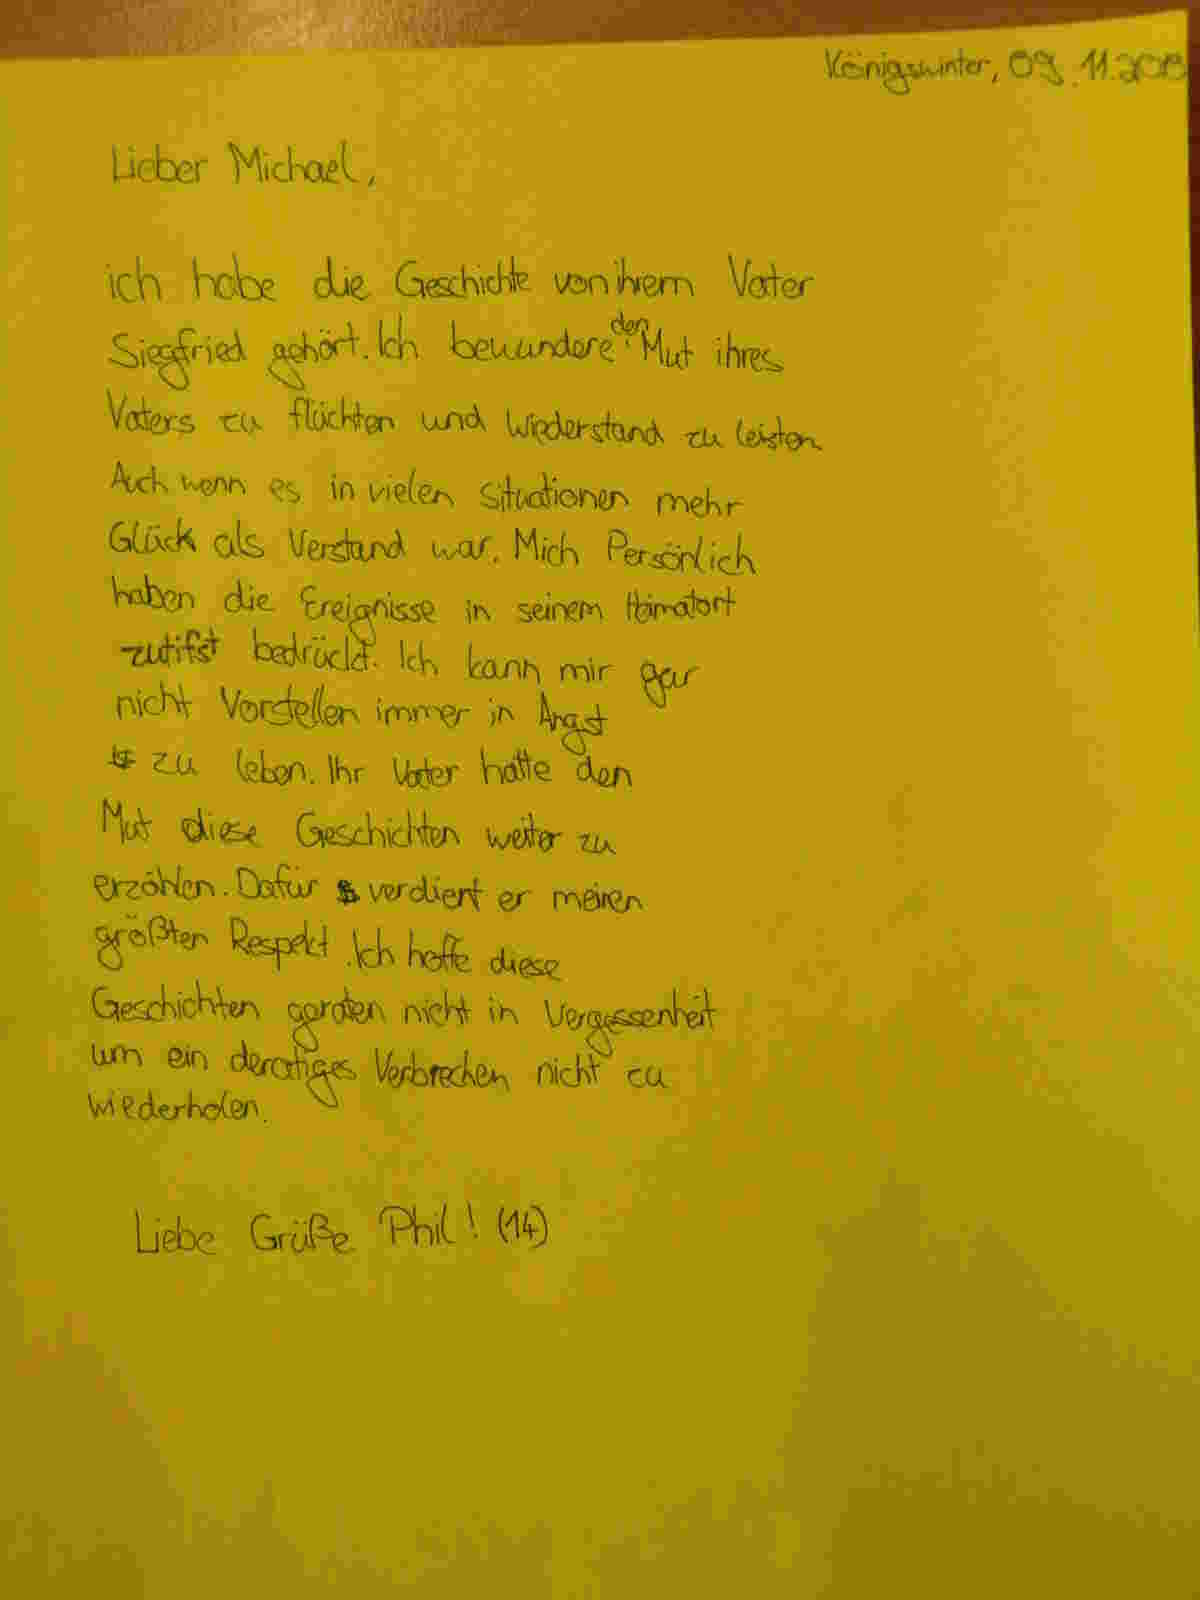 Königswinter, 09.11.2018
Lieber Michael,
ich habe die Geschichte von ihrem Vater
Siegfried gehört. Ich bewundere den Mut ihres
Vaters zu flüchten und Wiederstand zu leisten
Auch wenn es in vielen Situationen mehr
Glück als Verstand war. Mich Persönlich
haben die Ereignisse in seinem Heimatort
zutifst bedrückt. Ich kann mir gar
nicht Vorstellen immer in Angst
zu leben. Ihr Vater hatte den
Mut diese Geschichten weiter zu
erzählen. Dafür verdient er meinen
größten Respekt. Ich hoffe diese
Geschichten geraten nicht in Vergessenheit
um ein deratiges Verbrechen nicht zu
wiederholen.
Liebe Grüße Phil! (14)